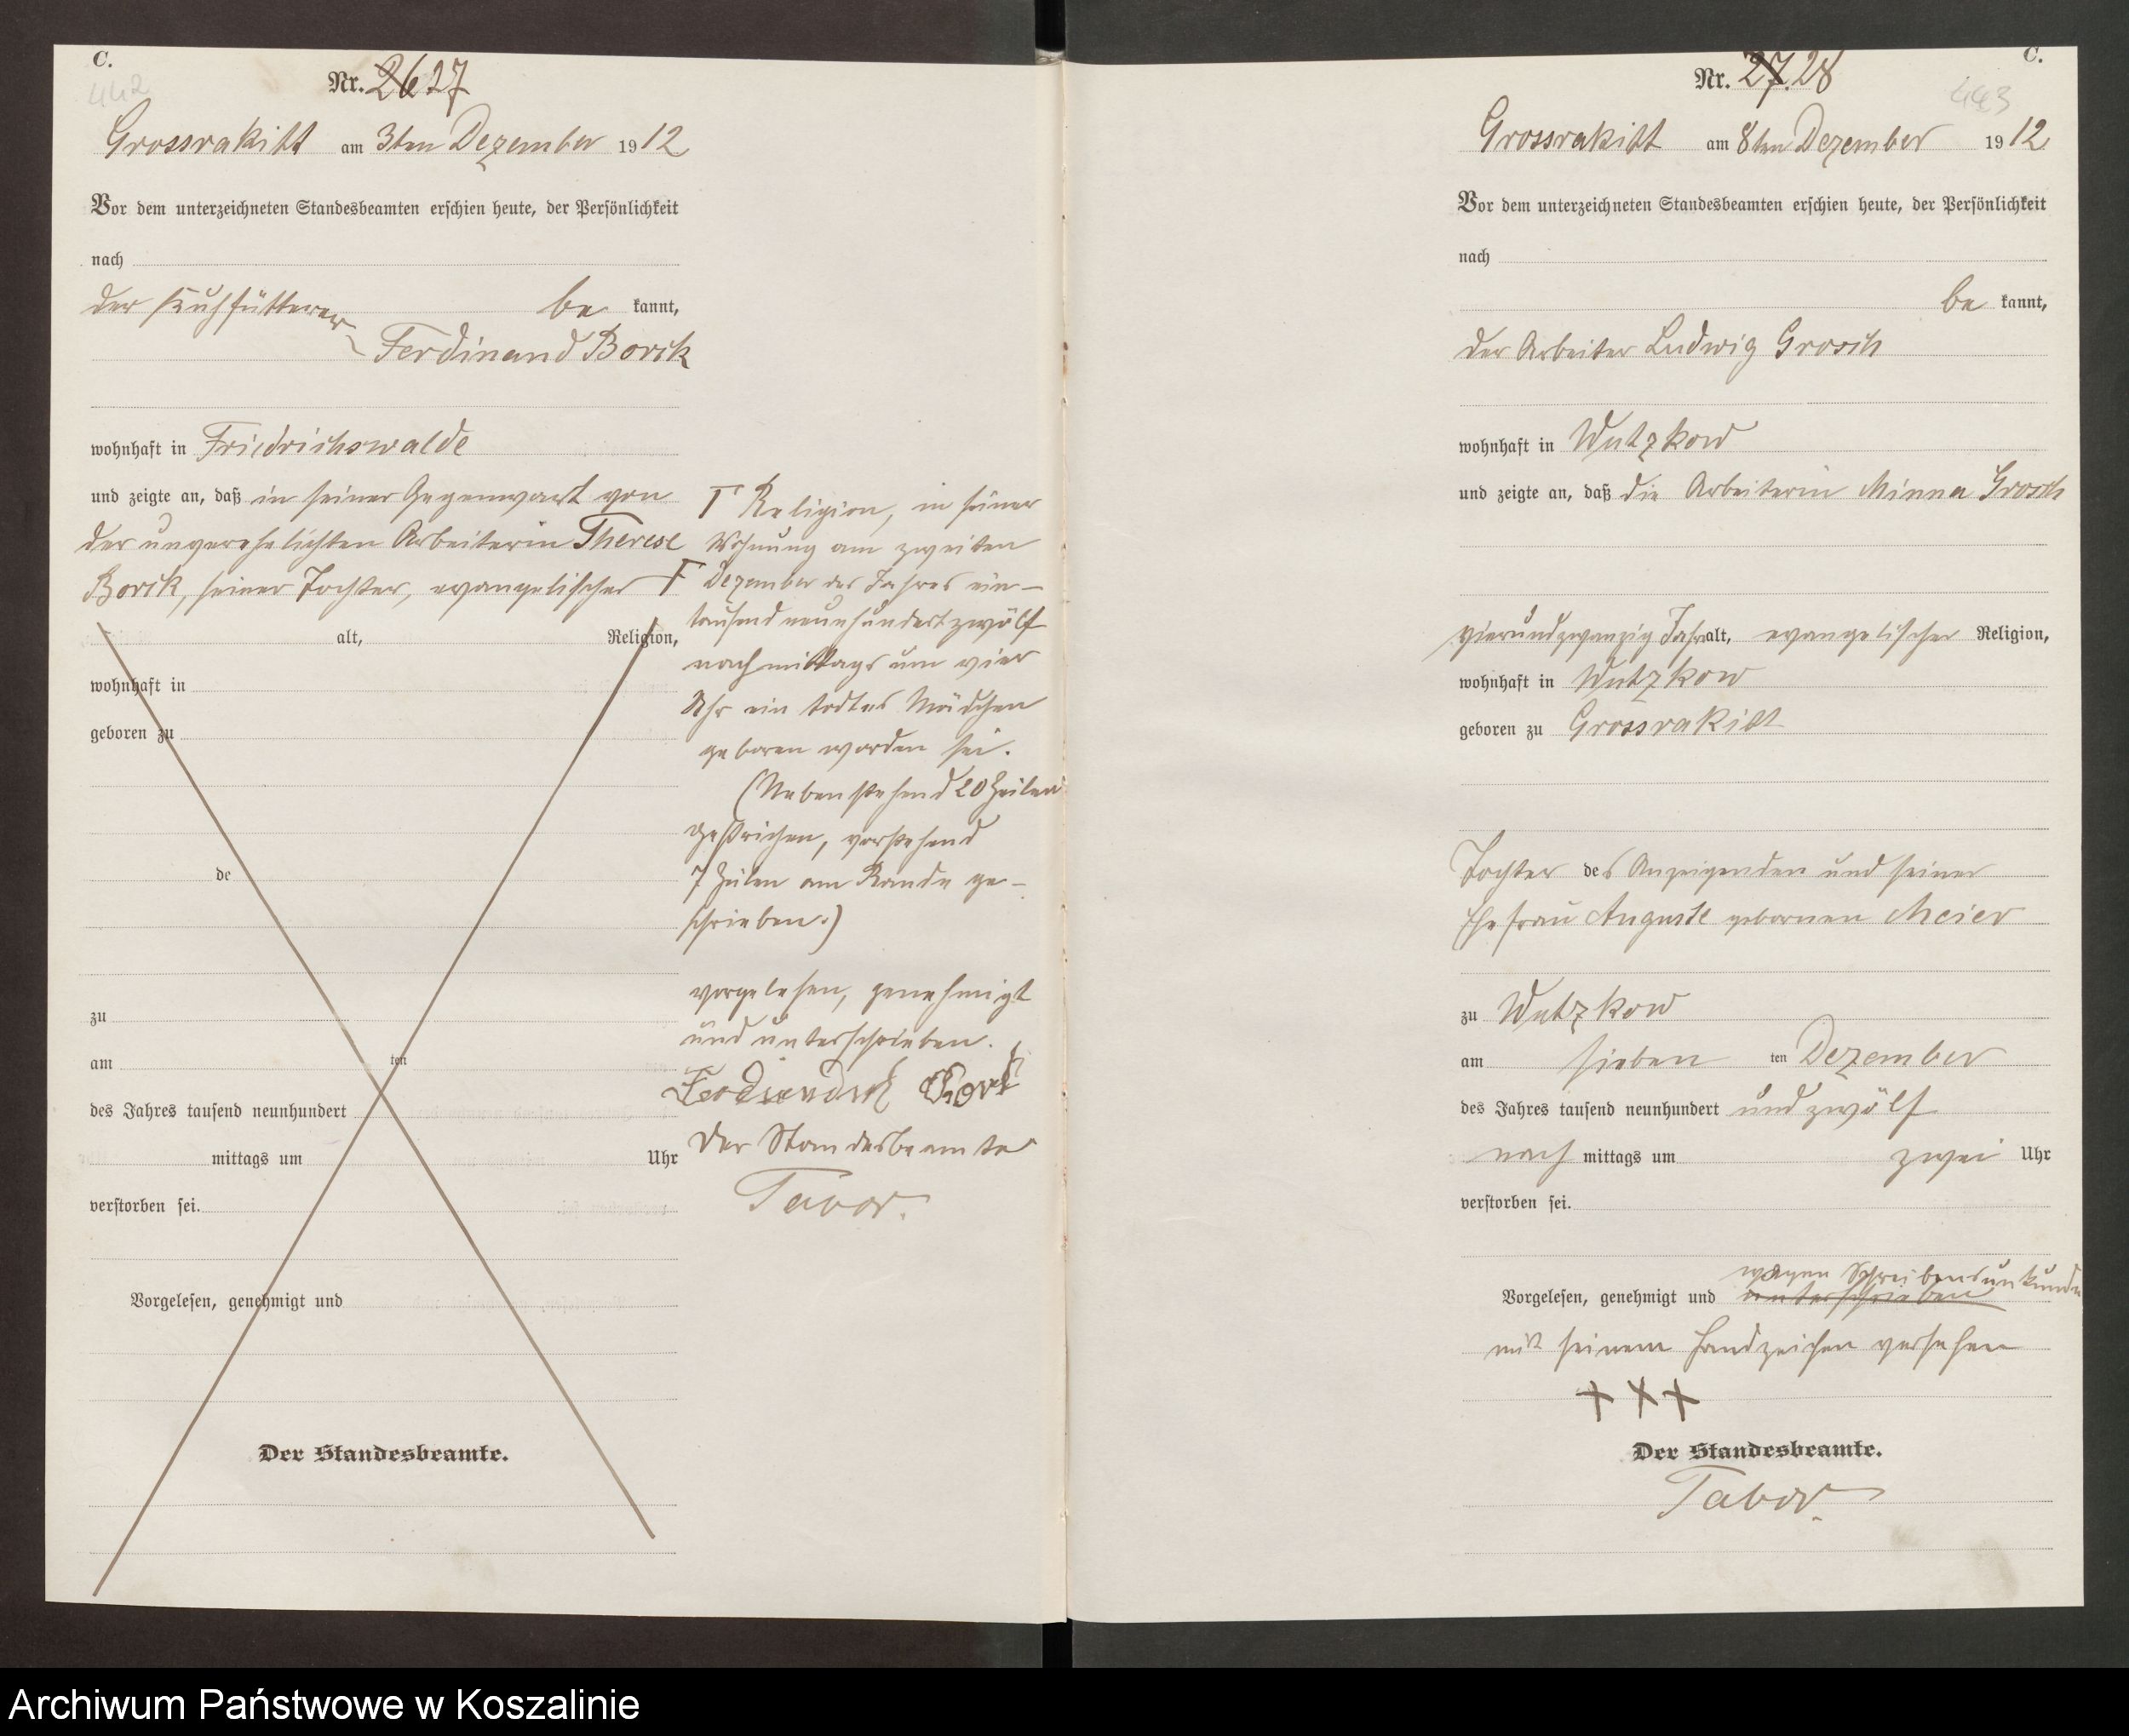 C.
442
Nr. 26 27
Grossrakitt am 3ten Dezember 1912
Vor dem unterzeichneten Standesbeamten erschien heute, der Persönlichkeit
nach
der Kuhfütterer be kannt,
Ferdinand Borck
wohnhaft in Friedrichswalde
und zeigte an, daß in seiner Gegenwart von
der unverehelichten Arbeiterin Therese
Borck, seiner Tochter, evangelischer Γ
alt, Religion,
wohnhaft in
geboren zu
de
zu
am ten
des Jahres tausend neunhundert
mittags um Uhr
verstorben sei.
Vorgelesen, genehmigt und
Der Standesbeamte.
Γ Religion, in seiner
Wohnung am zweiten
Dezember des Jahres ein-
tausend neunhundert zwölf
nachmittags um vier
Uhr ein todtes Mädchen
geboren worden sei.
(Nebenstehend 20 Zeilen
gestrichen, vorstehend
7 Zeilen am Rande ge-
schrieben.)
vorgelesen, genehmigt
und unterschrieben.
Bork
Der Standesbeamte
Tabor.
C.
443
Nr. 27. 28
Grossrakitt am 8ten Dezember 1912
Vor dem unterzeichneten Standesbeamten erschien heute, der Persönlichkeit
nach
be kannt,
der Arbeiter Ludwig Grosch
wohnhaft in Wutzkow
und zeigte an, daß die Arbeiterin Minna Grosch
vierundzwanzig Jahr alt, evangelischer Religion,
wohnhaft in Wutzkow
geboren zu Grossrakitt
Tochter des Anzeigenden und seiner
Ehefrau Auguste gebornen Meier
zu Wutzkow
am sieben ten Dezember
des Jahres tausend neunhundert und zwölf
nach mittags um zwei Uhr
verstorben sei.
wegen Schreibensunkunde
Vorgelesen, genehmigt und unterschrieben
mit seinem Handzeichen versehen
+ + +
Der Standesbeamte.
Tabor.
Archiwum Państwowe w Koszalinie